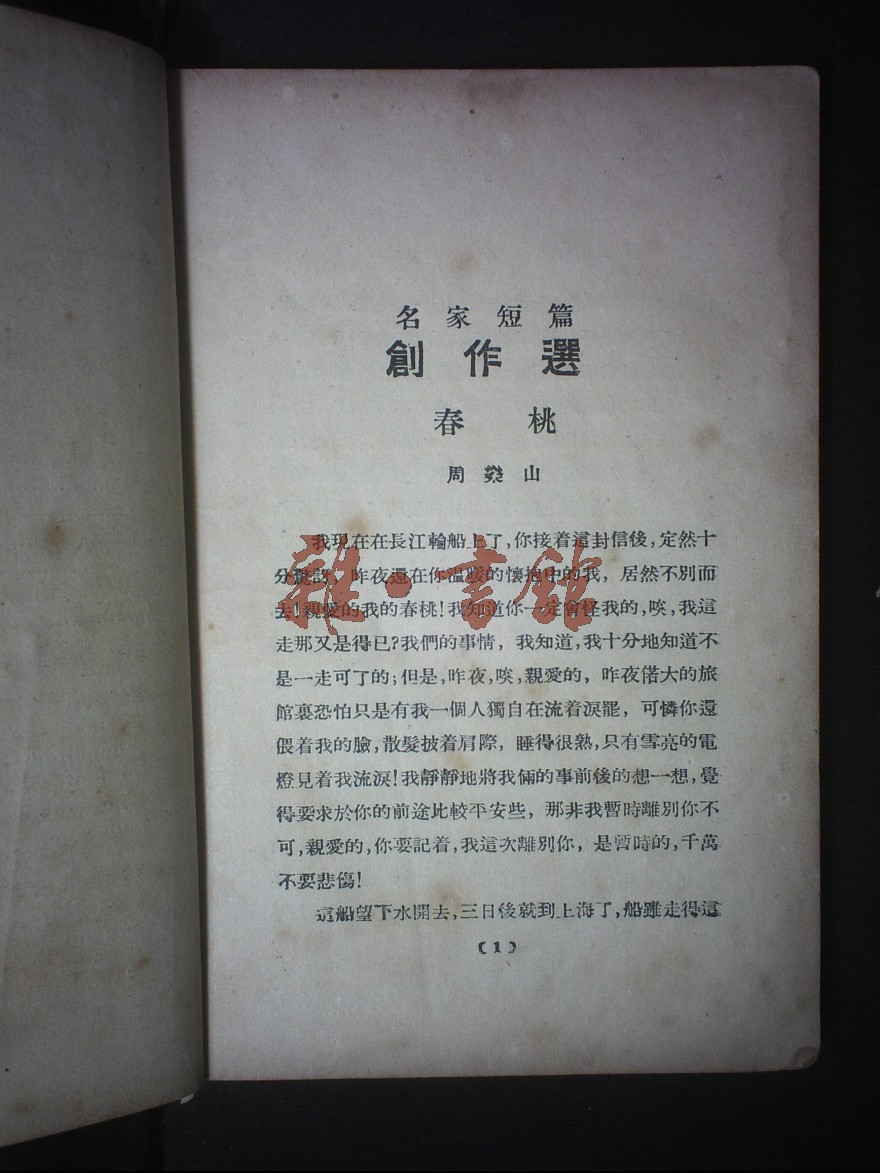 名家短篇
創作選
春桃
周山
我現在在長江輪船上了,你接着這封信後,定然十
分驚訝,昨夜還在你溫暖的懷抱中的我,居然不別而
去!親愛的我的春桃!我知道你一定會怪我的,唉,我這
走那又是得已?我們的事情,我知道,我十分地知道不
是一走可了的;但是,昨夜,唉,親愛的,昨夜偌大的旅
館裏恐怕只是有我一個人獨自在流着淚罷,可憐你還
偎着我的臉,散髮披着肩際,睡得很熟,只有雪亮的電
燈見着我流淚!我靜靜地將我倆的事前後的想一想,覺
得要求於你的前途比較平安些,那非我暫時離別你不
可,親愛的,你要記着,我這次離別你,是暫時的,千萬
不要悲傷!
這船望下水開去,三日後就到上海了,船雖走得這
(1)
雜·書館